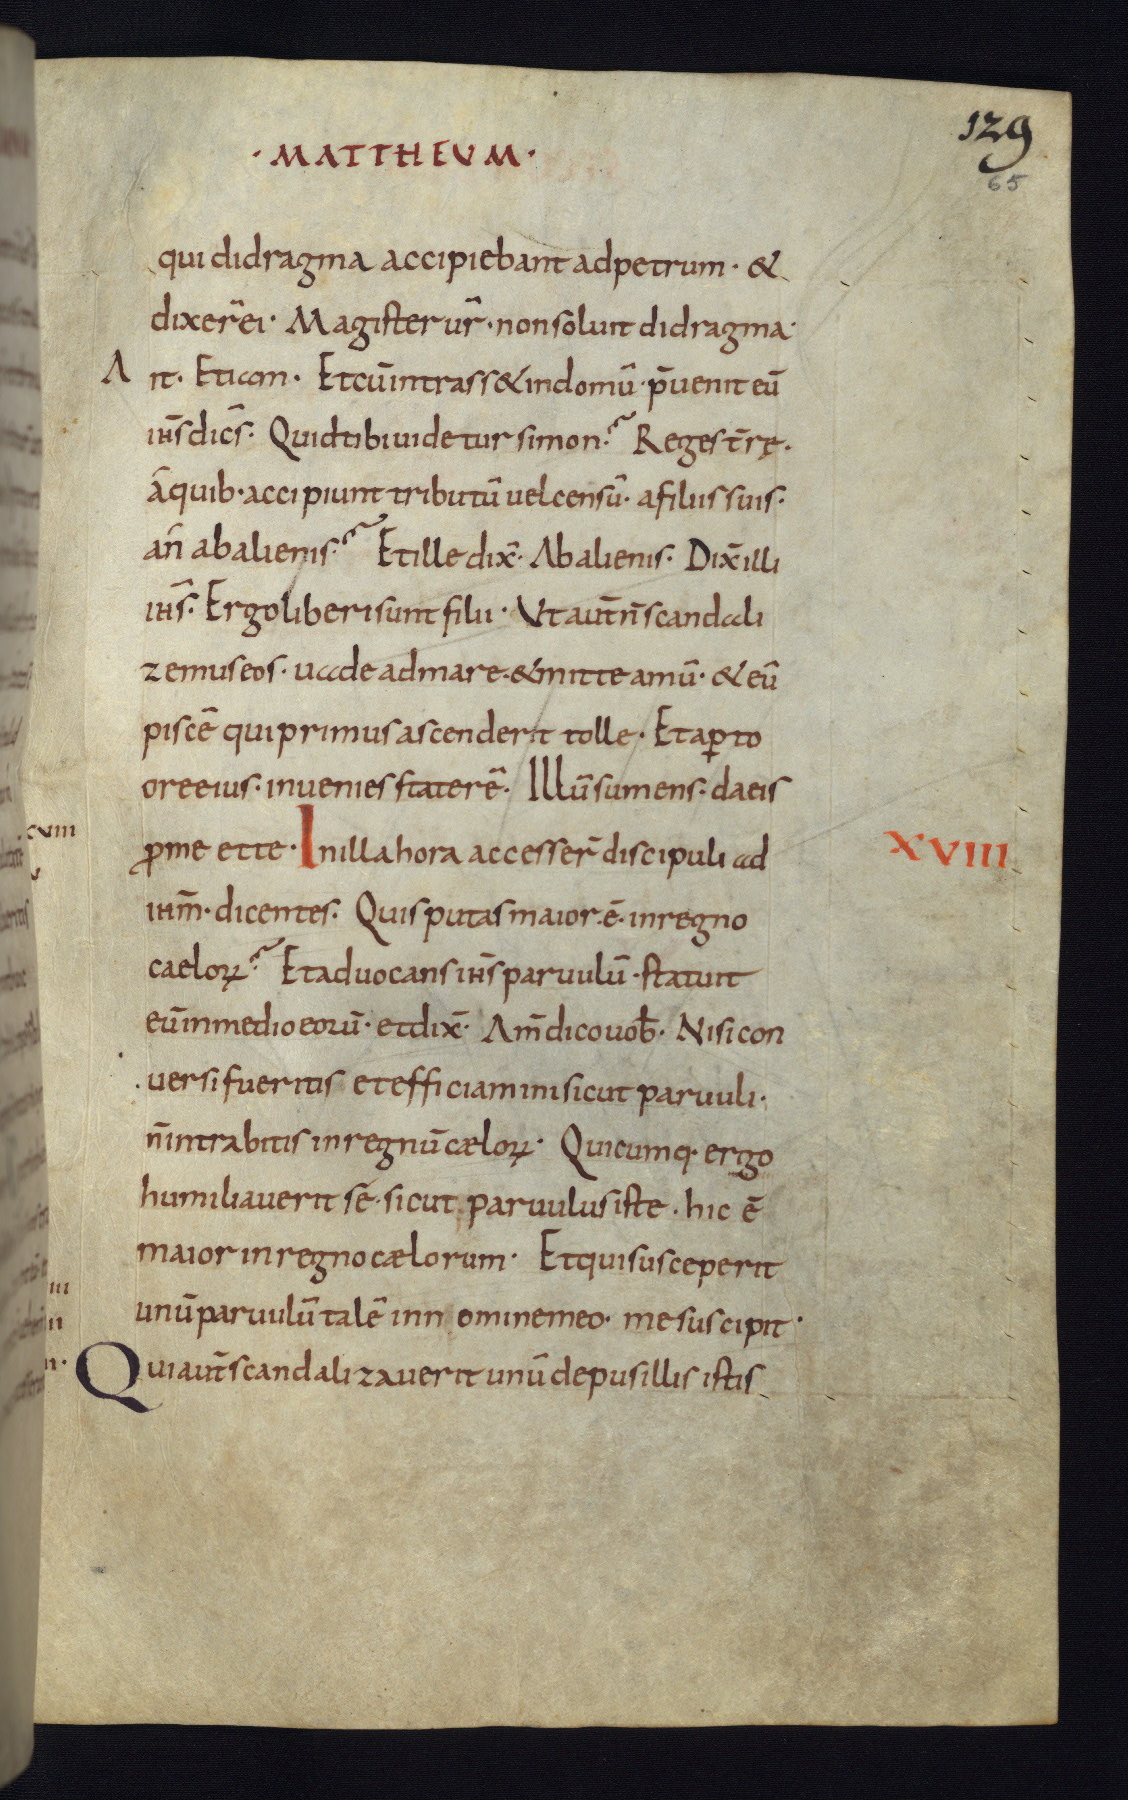 129
65
· MATTHEUM ·
qui didragma accipiebant adpetrum · &
dixer̄ ei · Magister ur̄ · non soluit didragma ·
Ait · Etiam · Et cū intrass& in domū · p̄uenit eū
ih̄s dic̄s · Quid tibi uidetur simon ? Reges t̄rę ·
ā quib · accipiunt tributū uel censū · a filiis suis ·
an̄ ab alienis ? Et ille dix̄ · Ab alienis · Dix̄ illi
ih̄s · Ergo liberi sunt filii · Ut aut̄ n̄ scandali
zemus eos · uade ad mare · & mitte amū · & eū
piscē qui primus ascenderit tolle · Et aꝑto
ore eius · inuenies staterē · Illū sumens · da eis
ꝓ me et te · In illa hora accesser̄ discipuli ad
XVIII
ih̄m · dicentes · Quis putas maior · ē · in regno
caeloꝝ ? Et aduocans ih̄s paruulū · statuit
eū in medio eorū · et dix̄ · Am̄ dico uob̄ · Nisi con
uersi fueritis et efficiamini sicut paruuli ·
n̄ intrabitis in regnū cæloꝝ · Quicumq · ergo
humiliauerit se · sicut paruulus iste · hic ē
maior in regno cælorum · Et qui susceperit
unū paruulū talē in nomine meo · me suscipit ·
Qui aut̄ scandalizauerit unū de pusillis istis